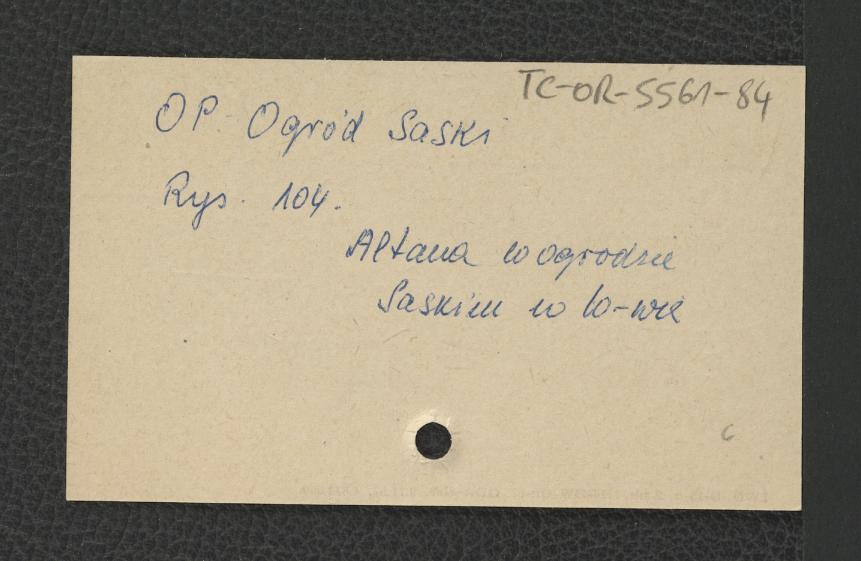 TC-OR-5561-84
OP. Ogród Saski
Rys. 104.
Altana w ogrodzie
Saskim w W-wie
6